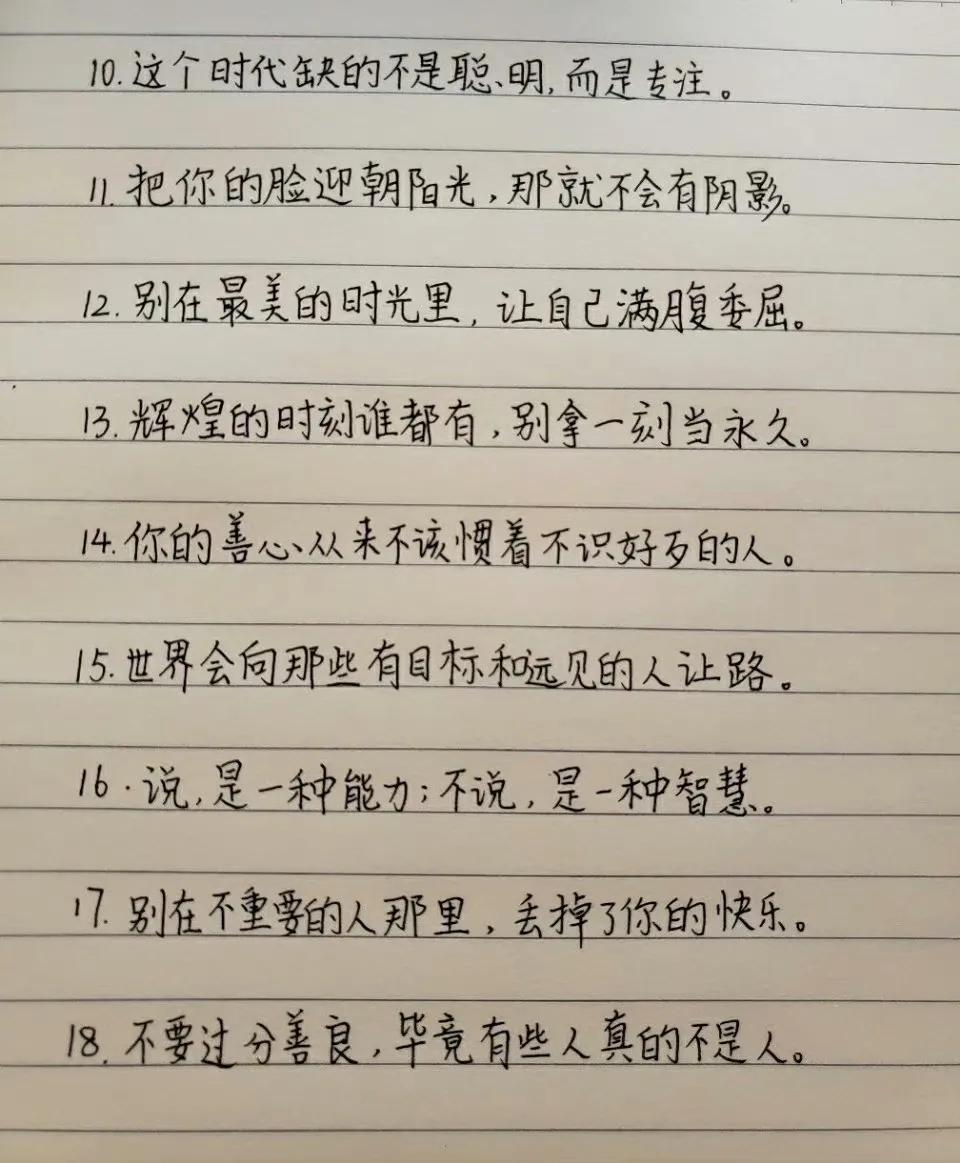 10.这个时代缺的不是聪明,而是专注。
11.把你的脸迎朝阳光,那就不会有阴影。
12.别在最美的时光里,让自己满腹委屈。
13.辉煌的时刻谁都有,别拿一刻当永久。
14.你的善心从来不该惯着不识好歹的人。
15.世界会向那些有目标和远见的人让路。
16.说,是一种能力;不说,是一种智慧。
17.别在不重要的人那里,丢掉了你的快乐。
18.不要过分善良,毕竟有些人真的不是人。